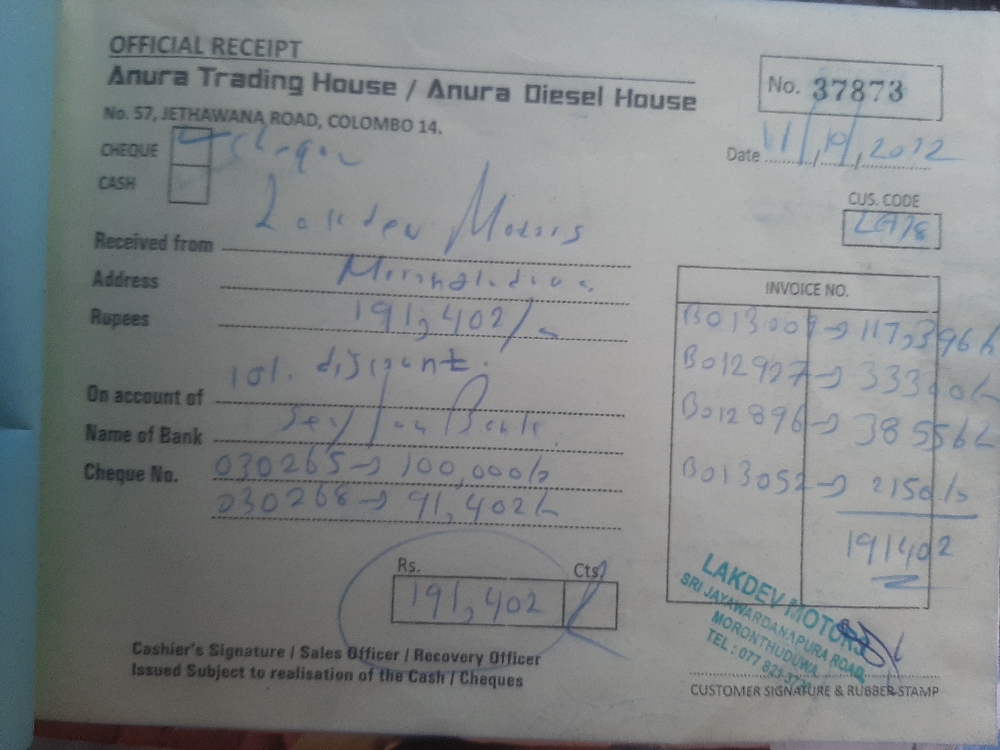 OFFICIAL RECEIPT
Anura Trading House / Anura Diesel House
No. 57, JETHAWANA ROAD, COLOMBO 14.
No. 37873
Date 11/10/2022
CHEQUE
CASH
CUS. CODE
Received from Lakdev Motors
Address
Rupees 191,402/-
On account of 10%. discount.
Name of Bank Seylan Bank
Cheque No. 030265 → 100,000/-
030268 → 91,402/-
INVOICE NO.
B013009 → 117,396/-
B012927 → 33300/-
B012896 → 38556/-
B013052 → 2150/-
191402
Rs. Cts
191,402
LAKDEV MOTORS
SRI JAYAWARDANAPURA ROAD,
MORONTHUDUWA.
TEL : 077 821
Cashier's Signature / Sales Officer / Recovery Officer
Issued Subject to realisation of the Cash / Cheques
CUSTOMER SIGNATURE & RUBBER STAMP